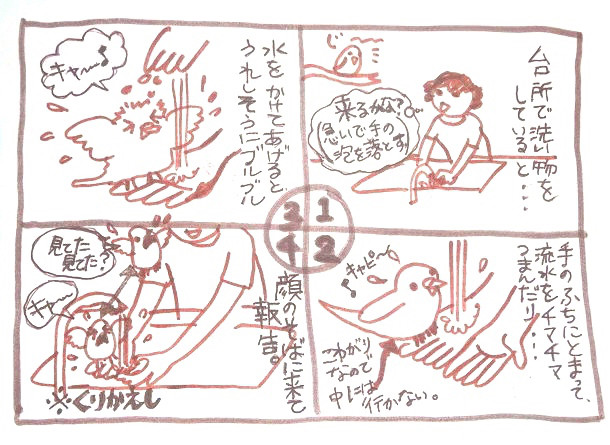 台所で洗い物を
していると・・・
じー
来るかな?
急いで手の
泡を落とす
1
2
3
4
手のふちにとまって、
流水をチマチマ
つまんだり・・・
キャピ〜♪
こわがり
なので
中には
行かない。
水をかけてあげると、
うれしそうにブルブル
キャ〜♪
顔のそばに来て
報告。
見てた?
見てた?
キャ〜
※くりかえし